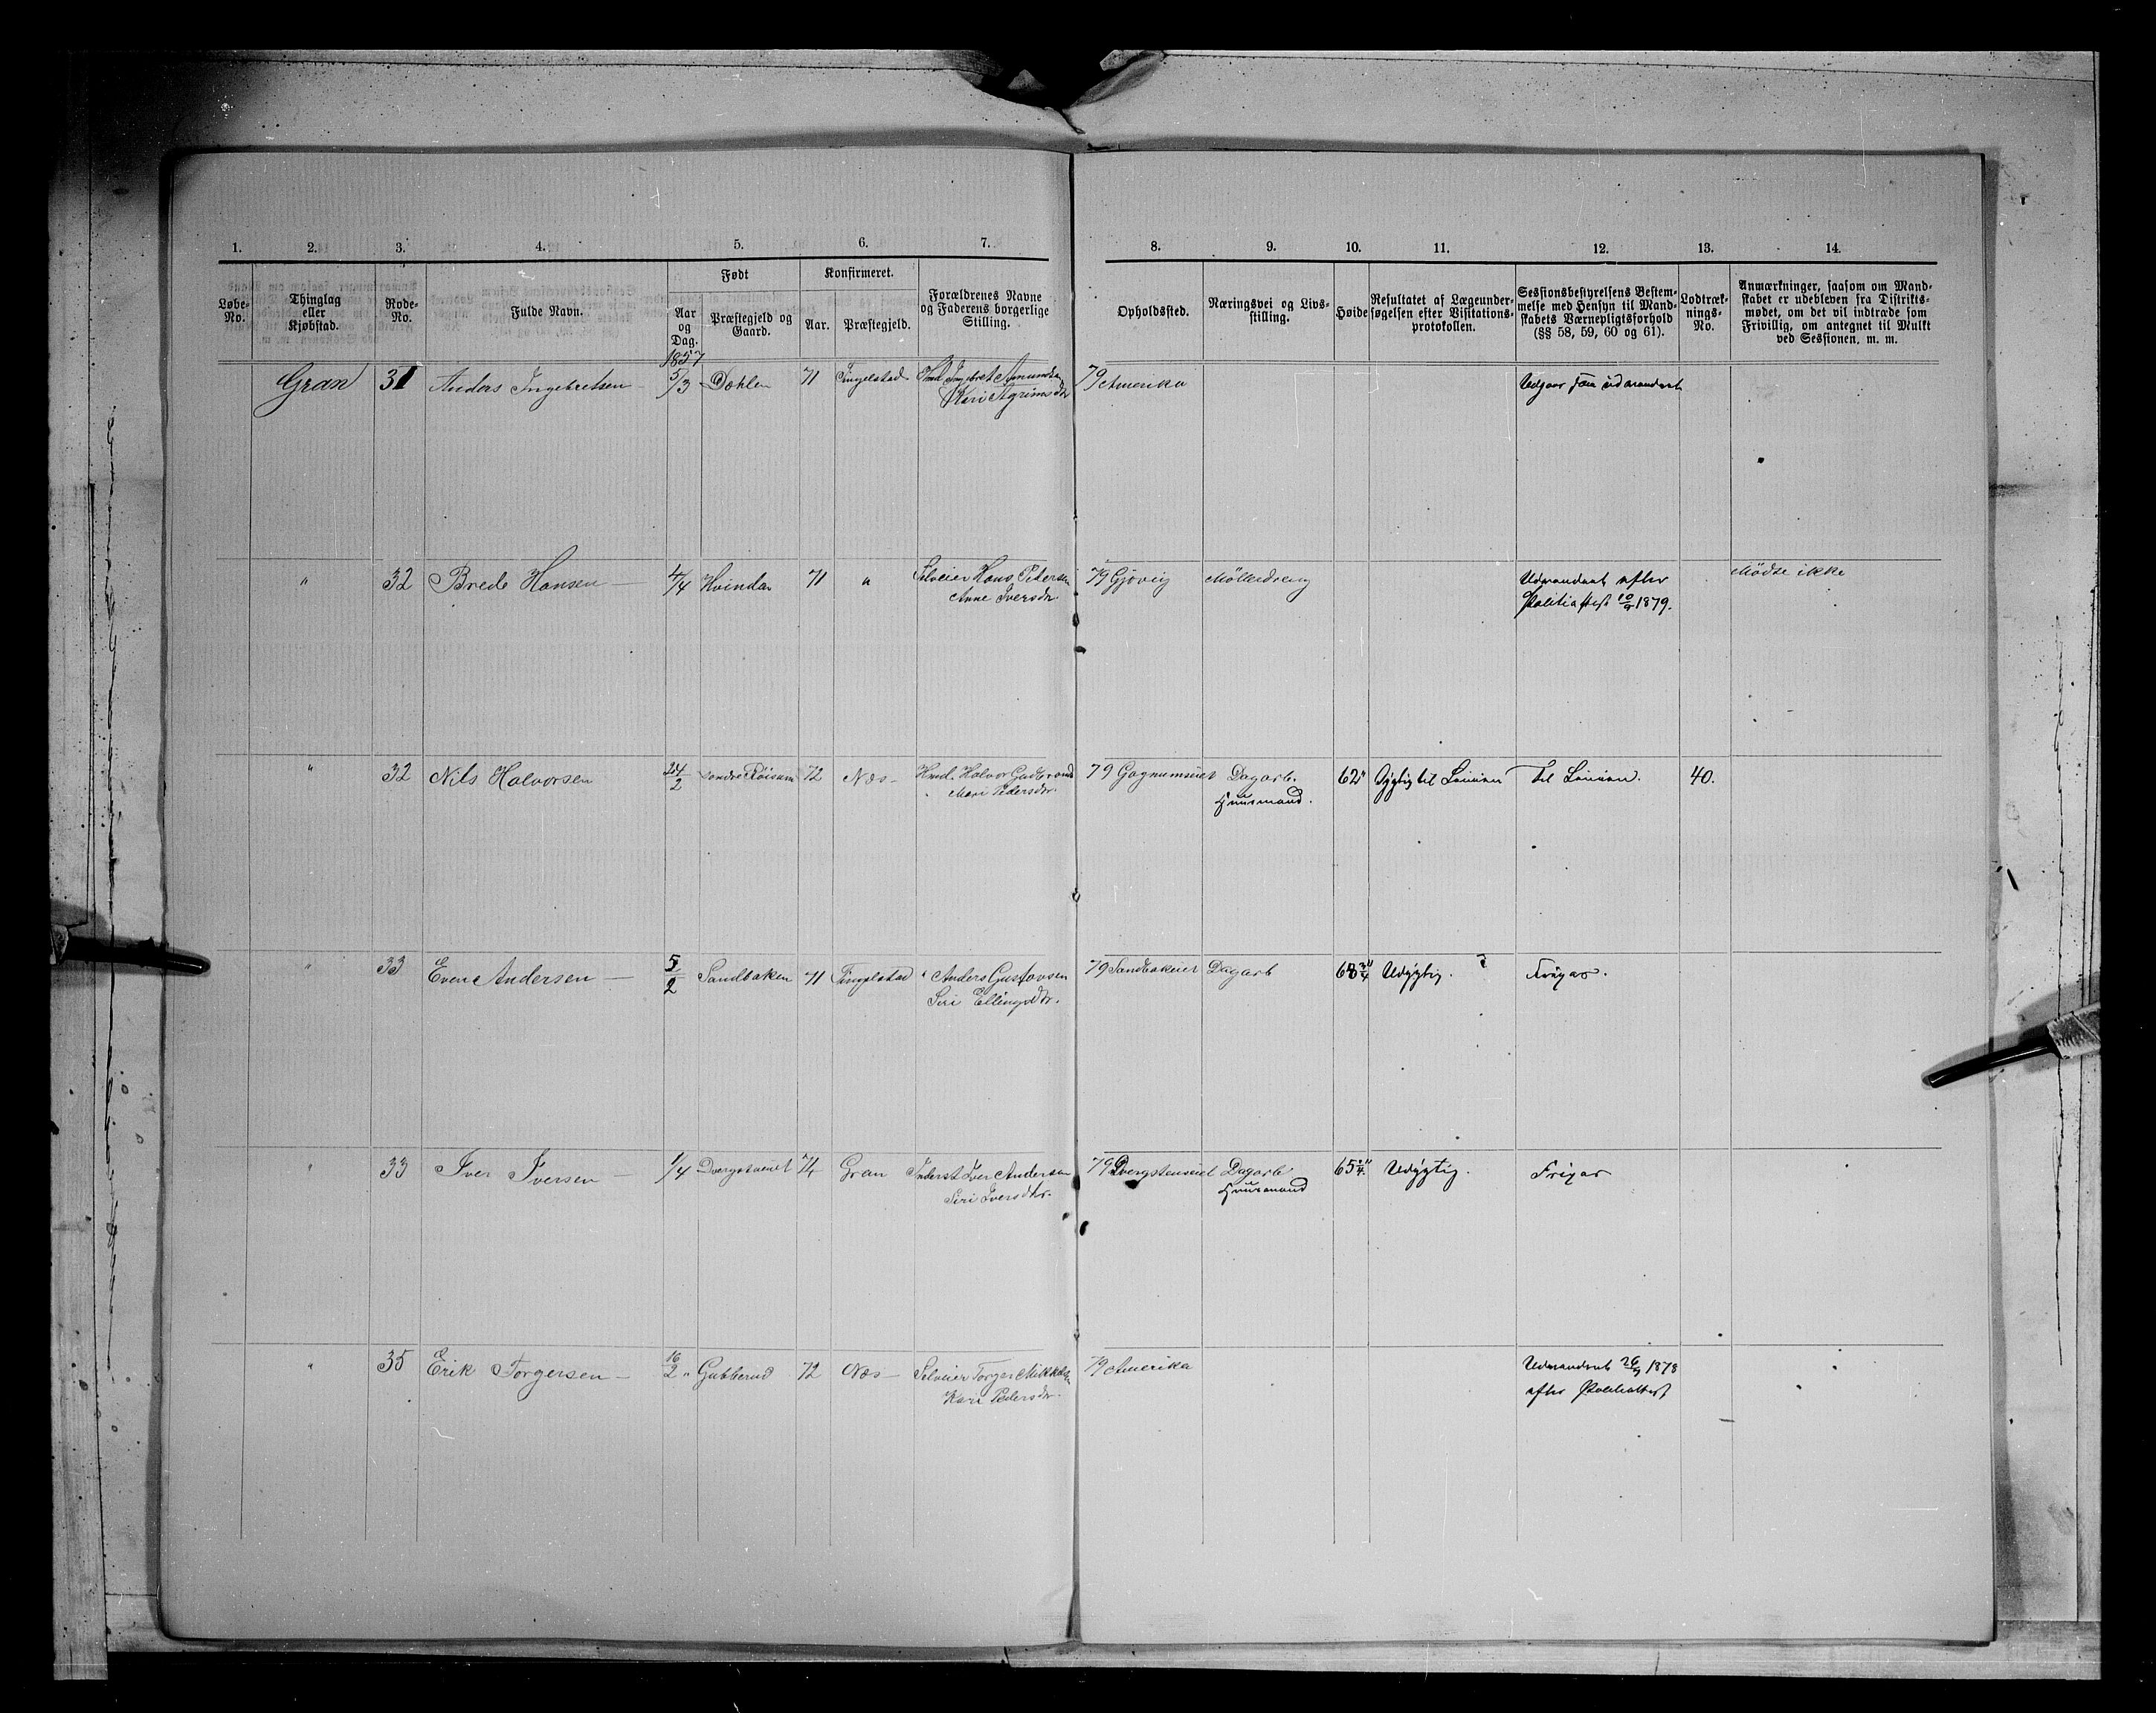 1. 2. 3. 4. 5. 6. 7. 8. 9. 10. 11. 12. 13. 14.
Løbe-No. Thinglag eller Kjøbstad. Rode-No. Fulde Navn. Født Aar og Dag. Præstegjeld og Gaard. Konfirmeret. Aar. Præstegjeld. Forældrenes Navne og Faderens borgerlige Stilling. Opholdssted. Næringsvei og Livsstilling. Høide Resultatet af Lægeundersøgelsen efter Visitationsprotokollen. Sessionsbestyrelsens Bestemmelse med Hensyn til Mandskabets Værnepligtsforhold (§§ 58, 59, 60 og 61). Lodtræknings-No. Anmærkninger, saasom om Mandskabet er udebleven fra Distriktsmødet, om det vil indtræde som Frivillig, om antegnet til Mulkt ved Sessionen, m. m.
1857
Gran 31 Anders Ingebretsen 5/3 Dæhlen 71 Tingelstad Hmd. Ingebret Amundsen 79 Amerika Udgaar som udvandret
Kari Agrimsdtr
" 32 Brede Hansen — 4/4 Hvinden 71 " Selveier Hans Petersen 79 Gjøvig Mølledreng Udvandret efter Mødte ikke
Anne Iversdtr. Politiattest 10/9 1879.
" 32 Nils Halvorsen 24/2 Søndre Røisum 72 Næs — Hmd. Halvor Gudbrands 79 Gagnumseiet Dagarb. 62" Dygtig til Linien Til Linien. 40.
Mari Pedersdtr. Huusmand.
" 33 Even Andersen — 5/2 Sandbaken 71 Tingelstad " Anders Gustavsen 79 Sandbakeiet Dagarb 68 3/4" Udygtig. Frigar.
Siri Ellingsdtr.
" 33 Iver Iversen — 1/4 Dvergsteneiet 74 Gran Inderst Iver Andersen 79 Dvergsteneiet Dagarb 65 1/4" Udygtig. Frigar
Siri Iversdtr. Huusmand
" 35 Erik Torgersen — 16/2 " Gubberud 72 Næs — Selveier Torger Mikkels 79 Amerika Udvandret 26/9 1878
Kari Pedersdtr. efter Politiattest